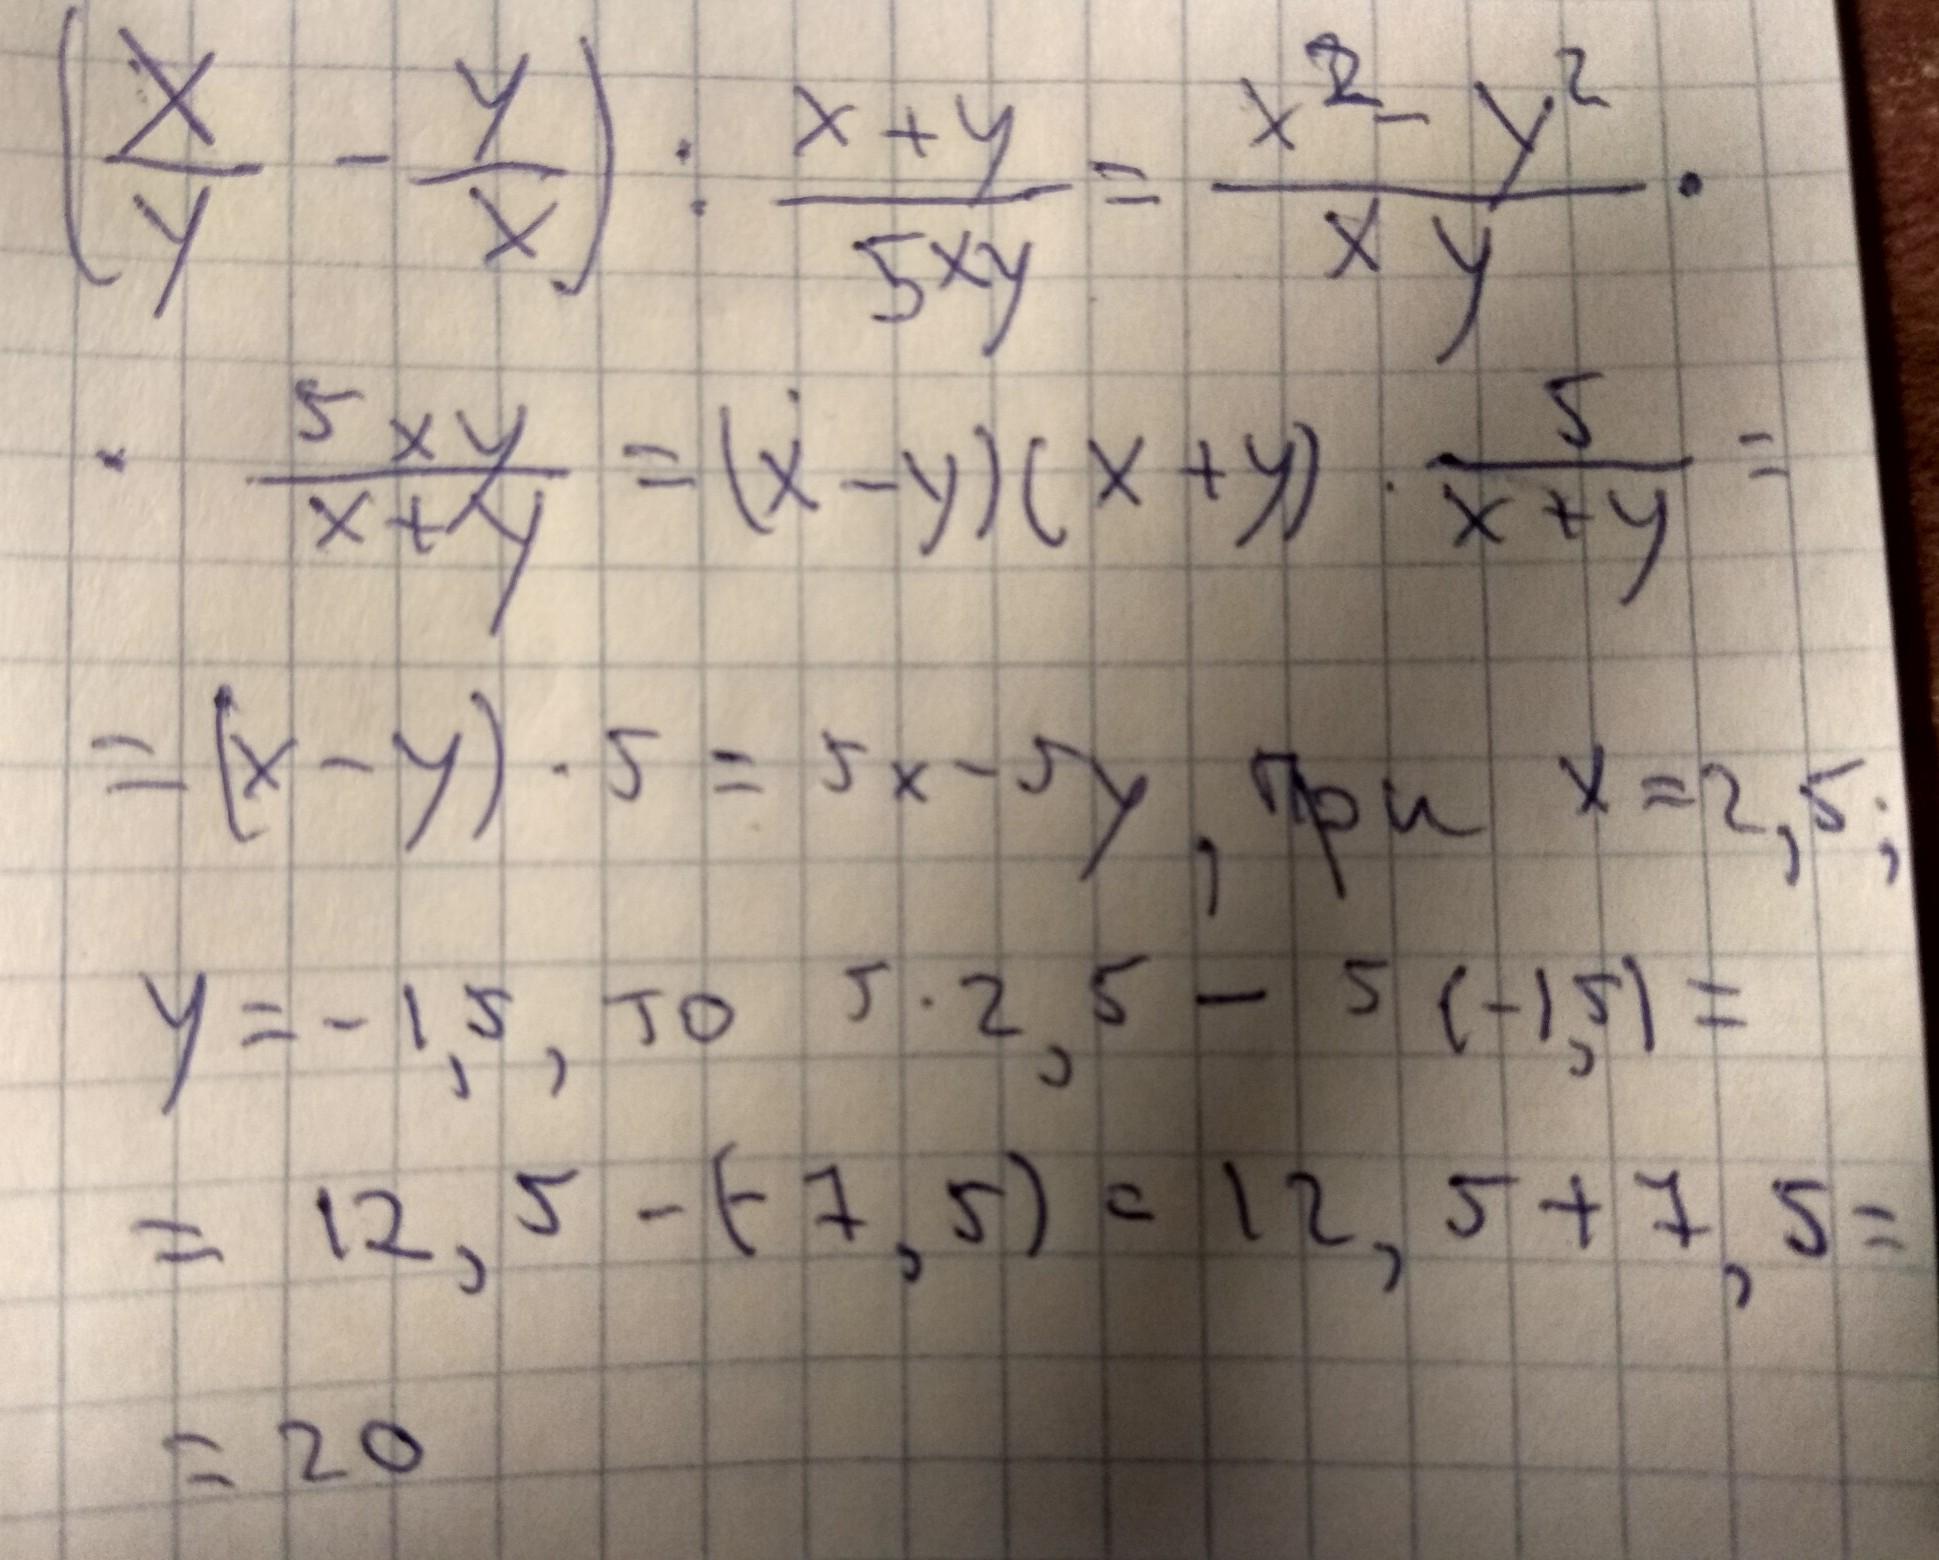 (x/y - y/x) : (x+y)/(5xy) = (x² - y²)/(xy) ·
· (5xy)/(x+y) = (x-y)(x+y) · 5/(x+y) =
= (x-y) · 5 = 5x - 5y, при x = 2,5;
y = -1,5, то 5 · 2,5 - 5(-1,5) =
= 12,5 - (-7,5) = 12,5 + 7,5 =
= 20